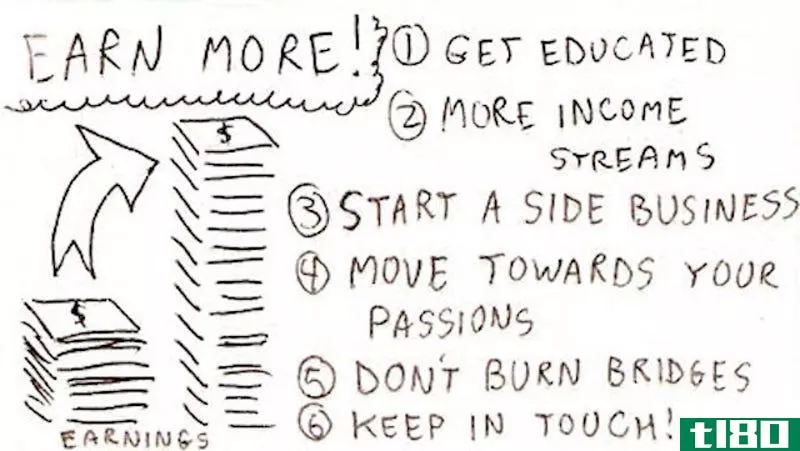 EARN MORE!
① GET EDUCATED
② MORE INCOME
STREAMS
③ START A SIDE BUSINESS
④ MOVE TOWARDS YOUR
PASSIONS
⑤ DON'T BURN BRIDGES
⑥ KEEP IN TOUCH!
$
$
EARNINGS
tl80